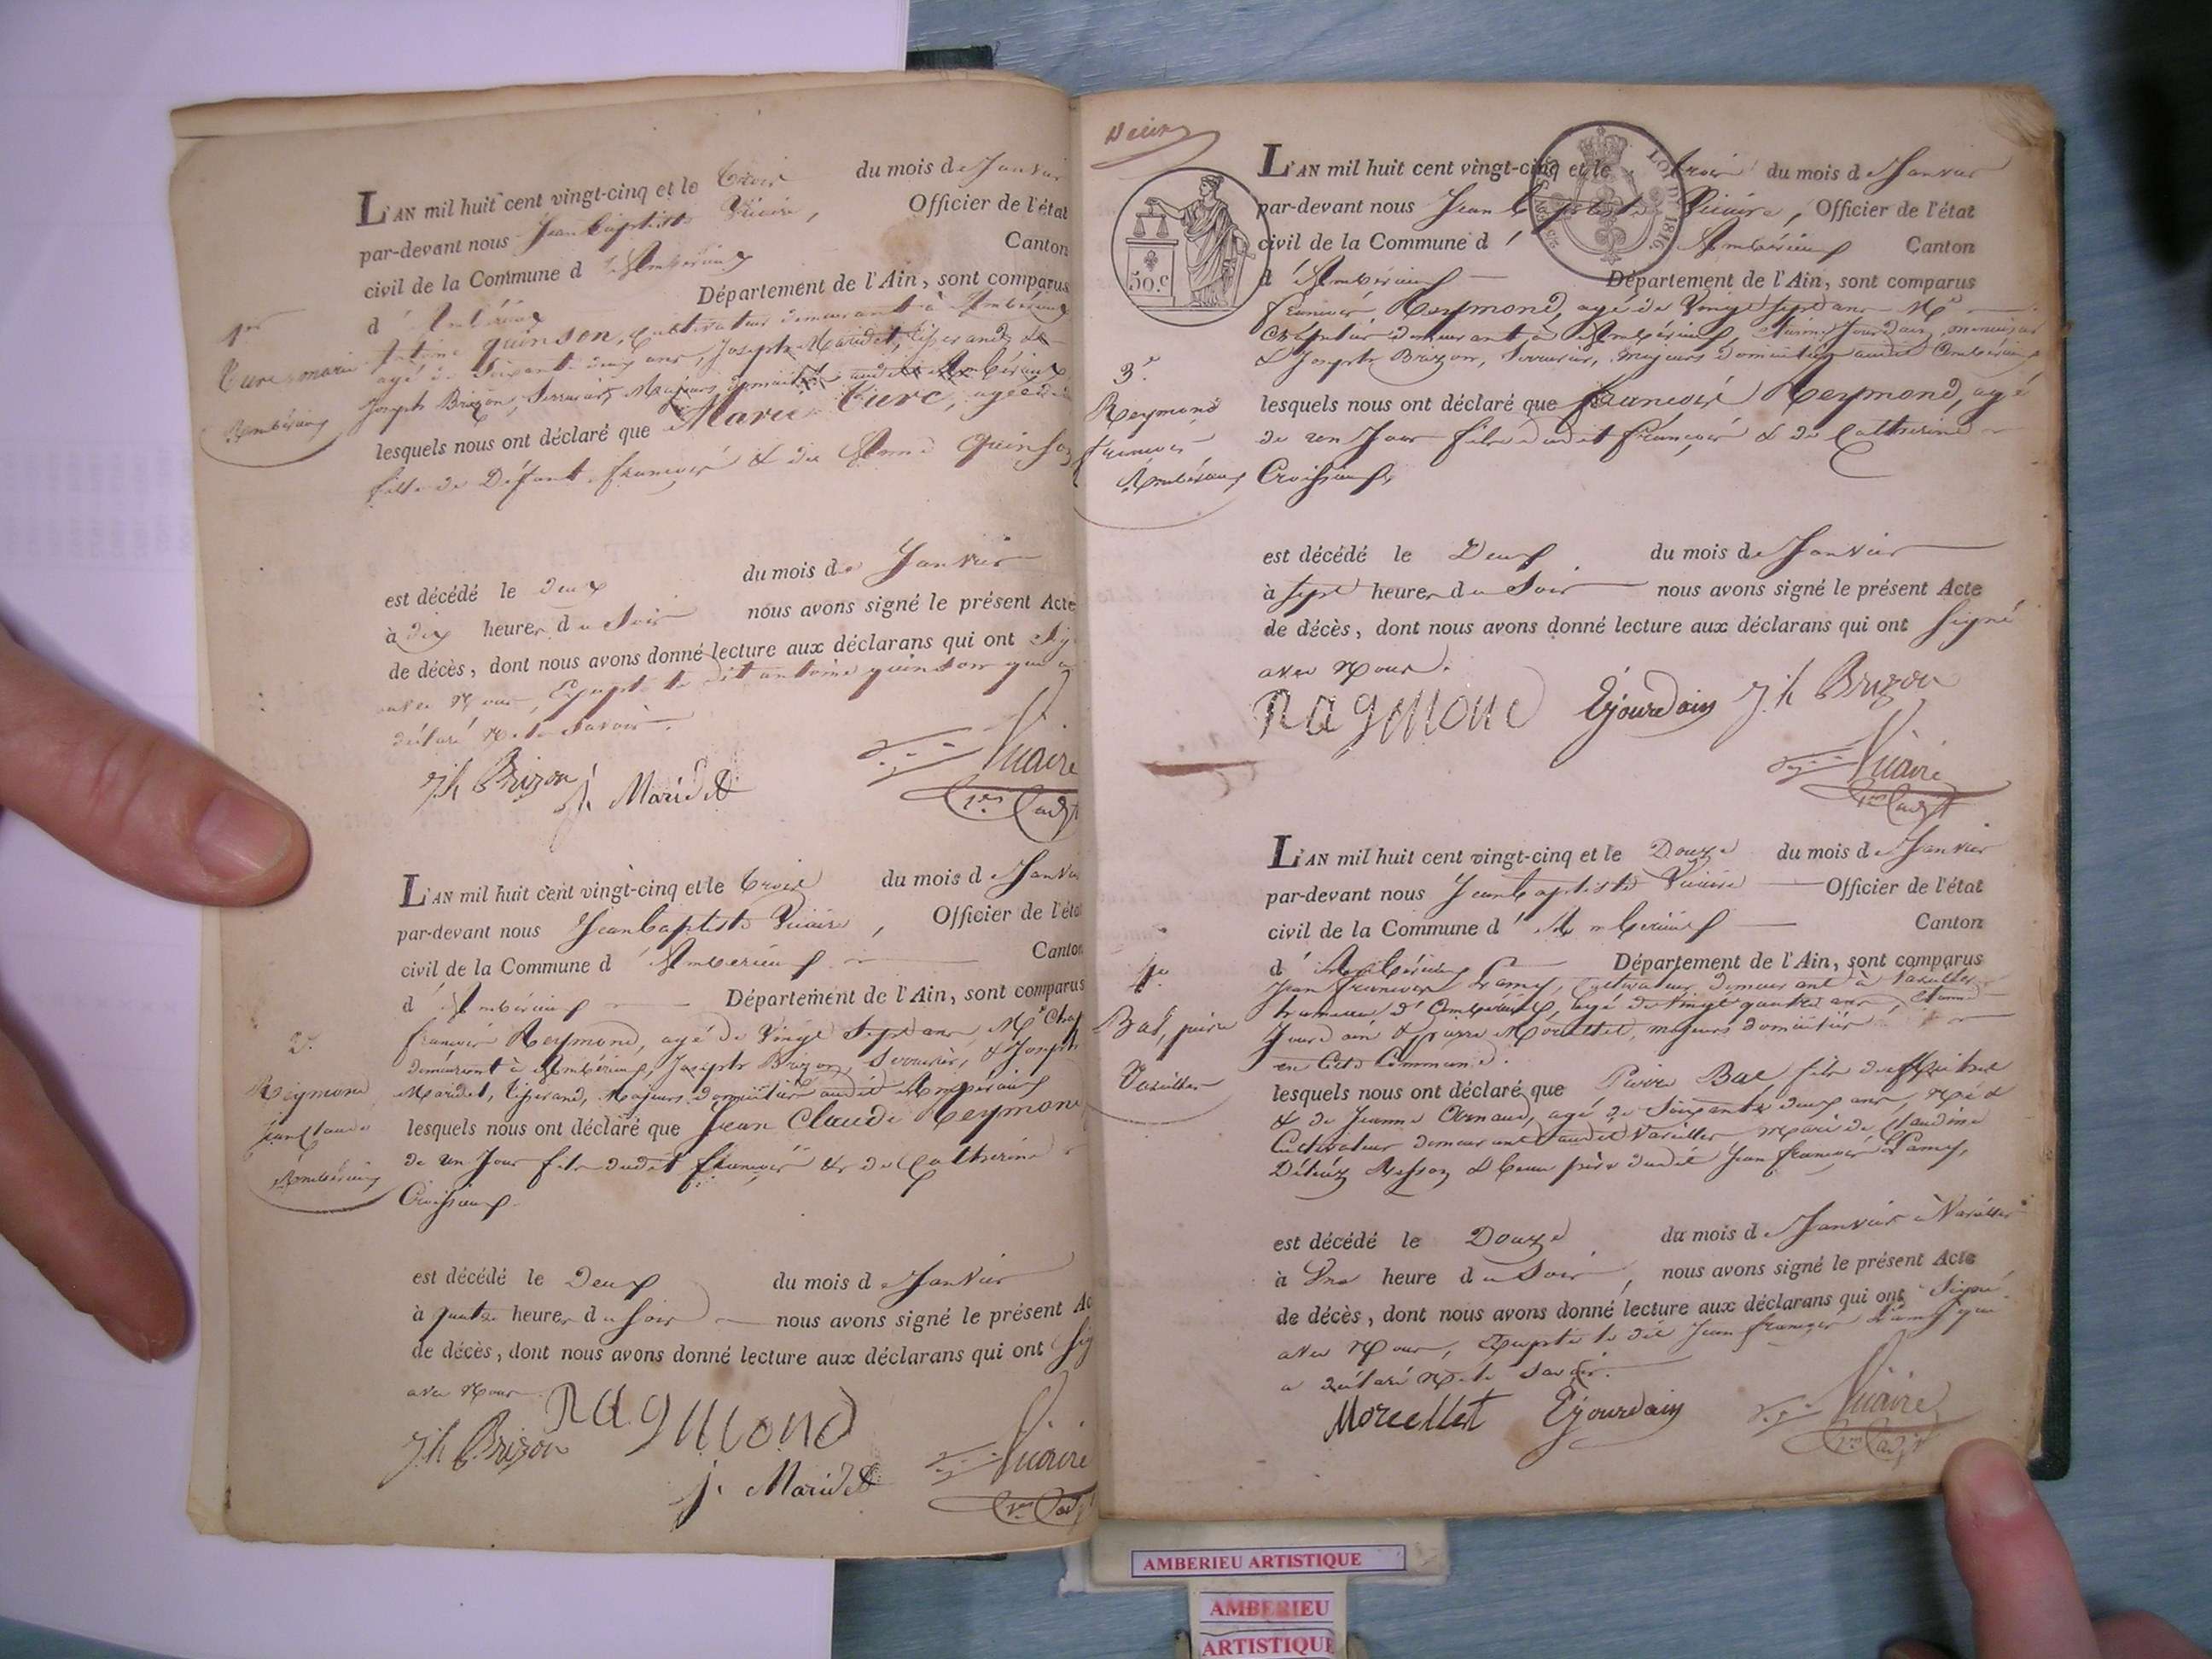 L'AN mil huit cent vingt-cinq et le trois du mois de Janvier
par-devant nous Jean Baptiste Vicaire, Officier de l'état
civil de la Commune d'Ambérieux Canton
d'Ambérieux Département de l'Ain, sont comparus
Antoine quinson, cultivateur demeurant à Ambérieux
agé de Soixante deux ans, Joseph Maridet, tisserand, &
Joseph Brizon, Serrurier, Majeurs domiciliés audit Ambérieux
lesquels nous ont déclaré que Marie Curc, agée de
fille de Défunt françois & de Anne quinson
1er
Curc marie
Ambérieux
est décédé le deux du mois de Janvier
à dix heures du Soir nous avons signé le présent Acte
de décès, dont nous avons donné lecture aux déclarans qui ont Sig
avec Nous, Excepté le dit antoine quinson qui a
déclaré Ne le Savoir.
Jh Brizon j. Maridet Vicaire
L'AN mil huit cent vingt-cinq et le trois du mois de Janvier
par-devant nous Jean Baptiste Vicaire, Officier de l'état
civil de la Commune d'Ambérieux Canton
d'Ambérieux Département de l'Ain, sont comparus
françois Reymond, agé de Vingt Sept ans, Md Chap
demeurant à Ambérieux, Joseph Brizon, Serrurier, & Joseph
Maridet, tisserand, Majeurs domiciliés audit Ambérieux
lesquels nous ont déclaré que Jean Claude Reymond
de un Jour fils dudit françois & de Catherine
Croissieux.
2.
Reymond
Jean Claude
Ambérieux
est décédé le Deux du mois de Janvier
à quatre heures du Soir nous avons signé le présent Ac
de décès, dont nous avons donné lecture aux déclarans qui ont Sig
avec Nous.
Jh Brizon Raymond
j. Maridet Vicaire
Décès
L'AN mil huit cent vingt-cinq et le trois du mois de Janvier
par-devant nous Jean Baptiste Vicaire, Officier de l'état
civil de la Commune d'Ambérieux Canton
d'Ambérieux Département de l'Ain, sont comparus
françois Reymond, agé de Vingt Sept ans Md
Chapelier demeurant à Ambérieux, Etienne Jourdain, menuisier
& Joseph Brizon, Serrurier, majeurs domiciliés audit Ambérieux
lesquels nous ont déclaré que françois Reymond, agé
de un Jour fils dudit françois & de Catherine
Croissieux,
50.c
LOI DE 1816.
3e
Reymond
francois
Ambérieux
est décédé le Deux du mois de Janvier
à Sept heures du Soir nous avons signé le présent Acte
de décès, dont nous avons donné lecture aux déclarans qui ont Signé
avec Nous.
Raymond Ejourdain Jh Brizon
Vicaire
L'AN mil huit cent vingt-cinq et le Douze du mois de Janvier
par-devant nous Jean Baptiste Vicaire Officier de l'état
civil de la Commune d'Ambérieux Canton
d'Ambérieux Département de l'Ain, sont comparus
Jean françois Lamy, Cultivateur demeurant à Vareilles
hameau d'Ambérieux, agé de Vingt quatre ans, Etienne
Jourdain & pierre Morcellet, majeurs domiciliés
en cette Commune.
lesquels nous ont déclaré que Pierre Bal, fils de
& de Jeanne Arnaud, agé de Soixante deux ans, Né &
Cultivateur demeurant audit Vareilles Mari de Claudine
& beau père dudit Jean françois Lamy,
4e
Bal, pierre
Vareilles
est décédé le Douze du mois de Janvier à Vareilles
à Une heure du Soir, nous avons signé le présent Acte
de décès, dont nous avons donné lecture aux déclarans qui ont Signé
avec Nous, Excepté le dit Jean françois Lamy qui
a déclaré Ne le Savoir.
Morcellet Ejourdain Vicaire
AMBERIEU ARTISTIQUE
AMBERIEU
ARTISTIQUE